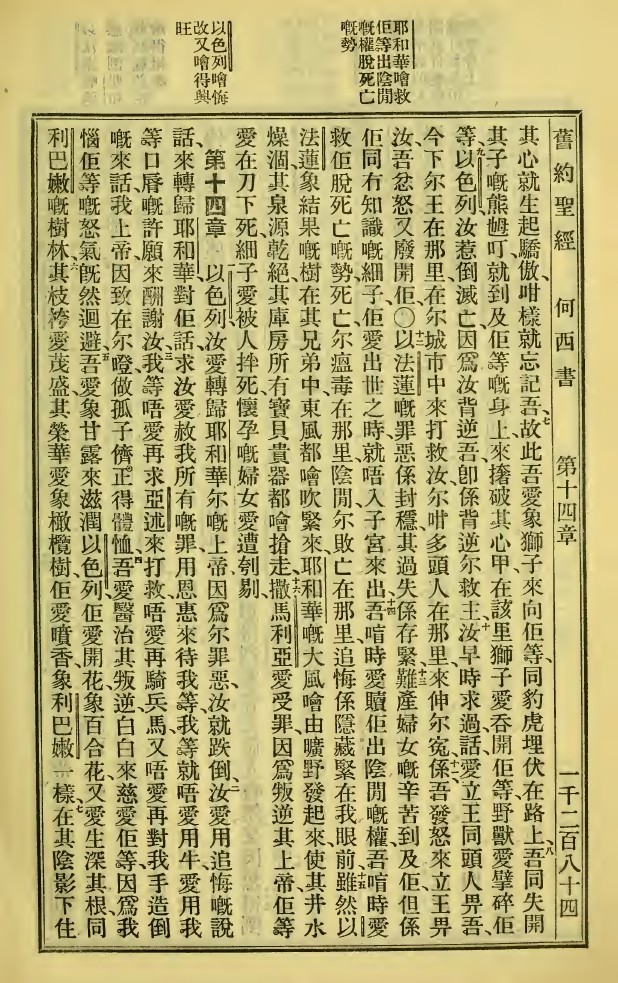 耶和華噲救
佢等出陰間
嘅權脫死亡
嘅勢
以色列噲悔
改又噲得興
旺
舊約聖經 何西書 第十四章 一千二百八十四
其心就生起驕傲咁樣就忘記吾、七故此吾愛象獅子來向佢等、同豹虎埋伏在路上、八吾同失開
其子嘅熊𡜵叮、就到及佢等嘅身上來撦破其心甲、在該里獅子愛吞開佢等、野獸愛擘碎佢
等、九以色列汝惹倒滅亡、因爲汝背逆吾、卽係背逆尔救主、十汝早時求過話、愛立王同頭人畀吾、
今下尔王在那里、在尔城市中來打救汝、尔咁多頭人在那里、來伸尔寃、十一係吾發怒來立王畀
汝、吾忿怒又廢開佢、〇十二以法蓮嘅罪惡係封穩、其過失係存緊、十三難產婦女嘅辛苦到及佢、但係
佢同冇知識嘅細子、佢愛出世之時、就唔入子宮來出、十四吾喑時愛贖佢出陰間嘅權、吾喑時愛
救佢脫死亡嘅勢、死亡尔瘟毒在那里、陰間尔敗亡在那里、追悔係隱藏緊在我眼前、十五雖然以
法蓮象結果嘅樹在其兄弟中、東風都噲吹緊來、耶和華嘅大風噲由曠野發起來、使其井水
燥涸、其泉源乾絕、其庫房所有寶貝貴器都噲搶走、十六撒馬利亞愛受罪、因爲叛逆其上帝、佢等
愛在刀下死、細子愛被人拌死、懷孕嘅婦女愛遭刳剔、
第十四章 一以色列汝愛轉歸耶和華尔嘅上帝、因爲尔罪惡、汝就跌倒、二汝愛用追悔嘅說
話、來轉歸耶和華、對佢話、求汝愛赦我所有嘅罪、用恩惠來待我等、我等就唔愛用牛、愛用我
等口唇嘅許願、來酬謝汝、三我等唔愛再求亞述來打救、唔愛再騎兵馬、又唔愛再對我手造倒
嘅來話、我上帝、因致在尔噔做孤子儕正得體恤、四吾愛醫治其叛逆、白白來慈愛佢等、因爲我
惱佢等嘅怒氣旣然迴避、五吾愛象甘露來滋潤以色列、佢愛開花象百合花、又愛生深其根同
利巴嫩嘅樹林、六其枝袴愛茂盛、其榮華愛象橄欖樹、佢愛噴香象利巴嫩一樣、七在其陰影下住